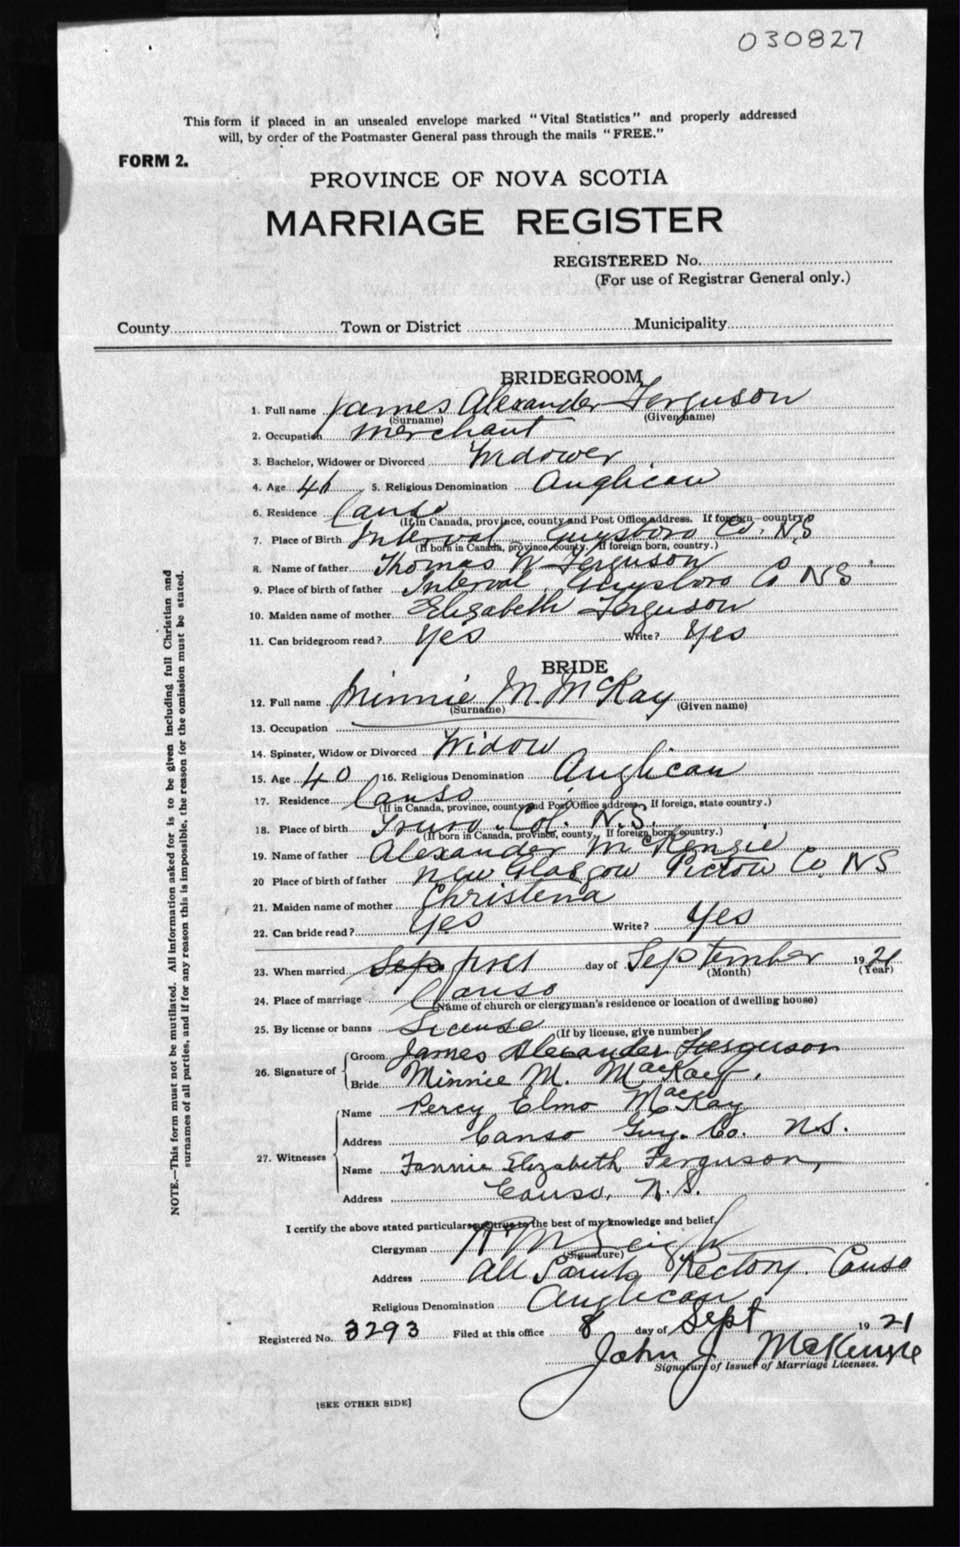 030827
This form if placed in an unsealed envelope marked "Vital Statistics" and properly addressed
will, by order of the Postmaster General pass through the mails "FREE."
FORM 2.
PROVINCE OF NOVA SCOTIA
MARRIAGE REGISTER
REGISTERED No.
(For use of Registrar General only.)
County Town or District Municipality
BRIDEGROOM
1. Full name James Alexander Ferguson
(Surname) (Given name)
2. Occupation Merchant
3. Bachelor, Widower or Divorced Widower
4. Age 5. Religious Denomination Anglican
6. Residence Canso
(If in Canada, province, county and Post Office address. If foreign country)
7. Place of Birth Interval Guysboro Co. N.S
(If born in Canada, province, county. If foreign born, country.)
8. Name of father Thomas W Ferguson
9. Place of birth of father Interval Guysboro Co NS
10. Maiden name of mother Elizabeth Ferguson
11. Can bridegroom read? Yes Write? Yes
BRIDE
12. Full name Minnie M. McKay
(Surname) (Given name)
13. Occupation
14. Spinster, Widow or Divorced Widow
15. Age 40 16. Religious Denomination Anglican
17. Residence Canso
(If in Canada, province, county and Post Office address. If foreign, state country.)
18. Place of birth Truro. Col. N.S.
(If born in Canada, province, county, If foreign born, country.)
19. Name of father Alexander McKenzie
20 Place of birth of father New Glasgow Pictou Co. NS
21. Maiden name of mother Christena
22. Can bride read? Yes Write? Yes
23. When married Sep first day of September 1921
(Month) (Year)
24. Place of marriage Canso
(Name of church or clergyman's residence or location of dwelling house)
25. By license or banns License (If by license, give number)
26. Signature of
Groom James Alexander Ferguson
Bride Minnie M. MacKay.
27. Witnesses
Name Percy Elmo MacKay
Address Canso Guy. Co. N.S.
Name Fannie Elizabeth Ferguson,
Address Canso, N.S.
I certify the above stated particulars are true to the best of my knowledge and belief.
Clergyman
(Signature)
Address All Saints Rectory. Canso
Religious Denomination Anglican
Registered No. 3293 Filed at this office 8 day of Sept 1921
John J McKenzie
Signature of Issuer of Marriage Licenses.
[SEE OTHER SIDE]
NOTE.—This form must not be mutilated. All information asked for is to be given including full Christian and
surnames of all parties, and if for any reason this is impossible, the reason for the omission must be stated.